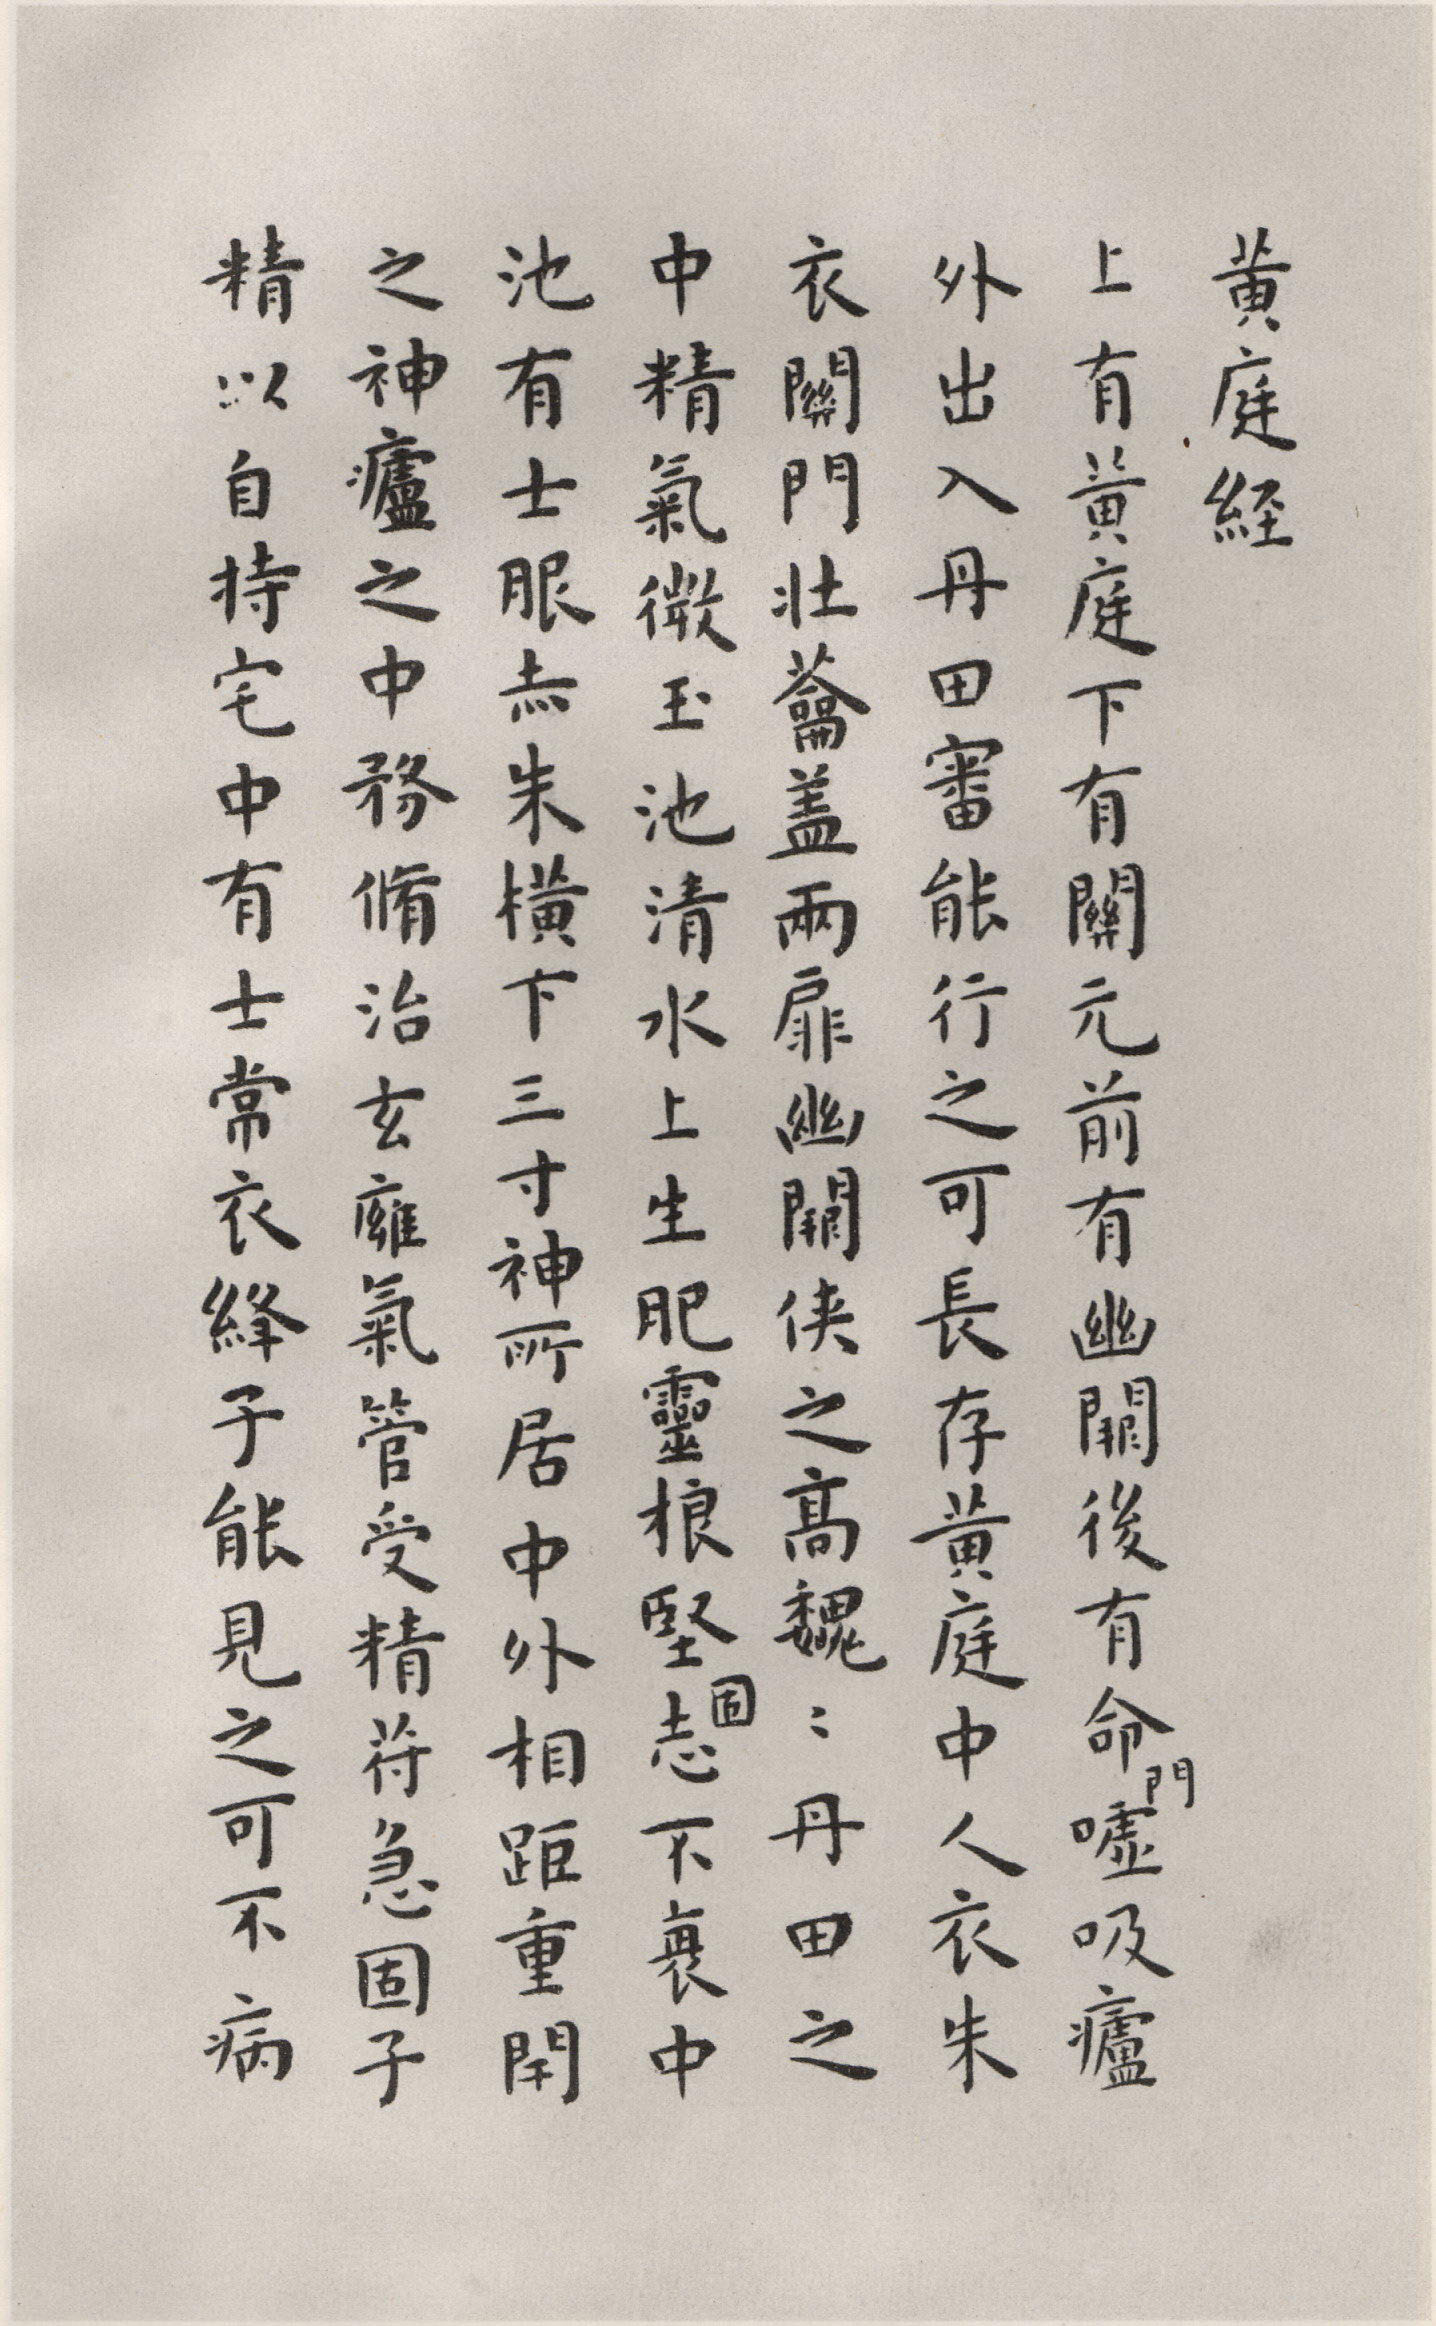 黄庭経
上有黄庭下有關元前有幽闕後有命門嘘吸廬
外出入丹田審能行之可長存黄庭中人衣朱
衣關門壯蘥盖兩扉幽闕俠之髙魏〻丹田之
中精氣微玉池清水上生肥靈根堅固志不衰中
池有士服赤朱横下三寸神所居中外相距重閇
之神廬之中務脩治玄癰氣管受精苻急固子
精以自持宅中有士常衣絳子能見之可不病